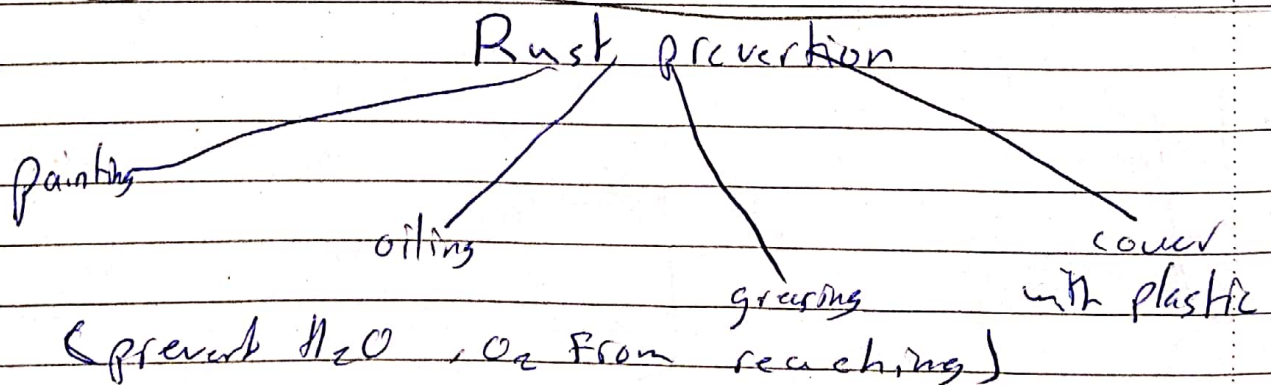 Rust prevention
painting
oiling
greasing
cover
with plastic
(prevent H₂O , O₂ From reaching)